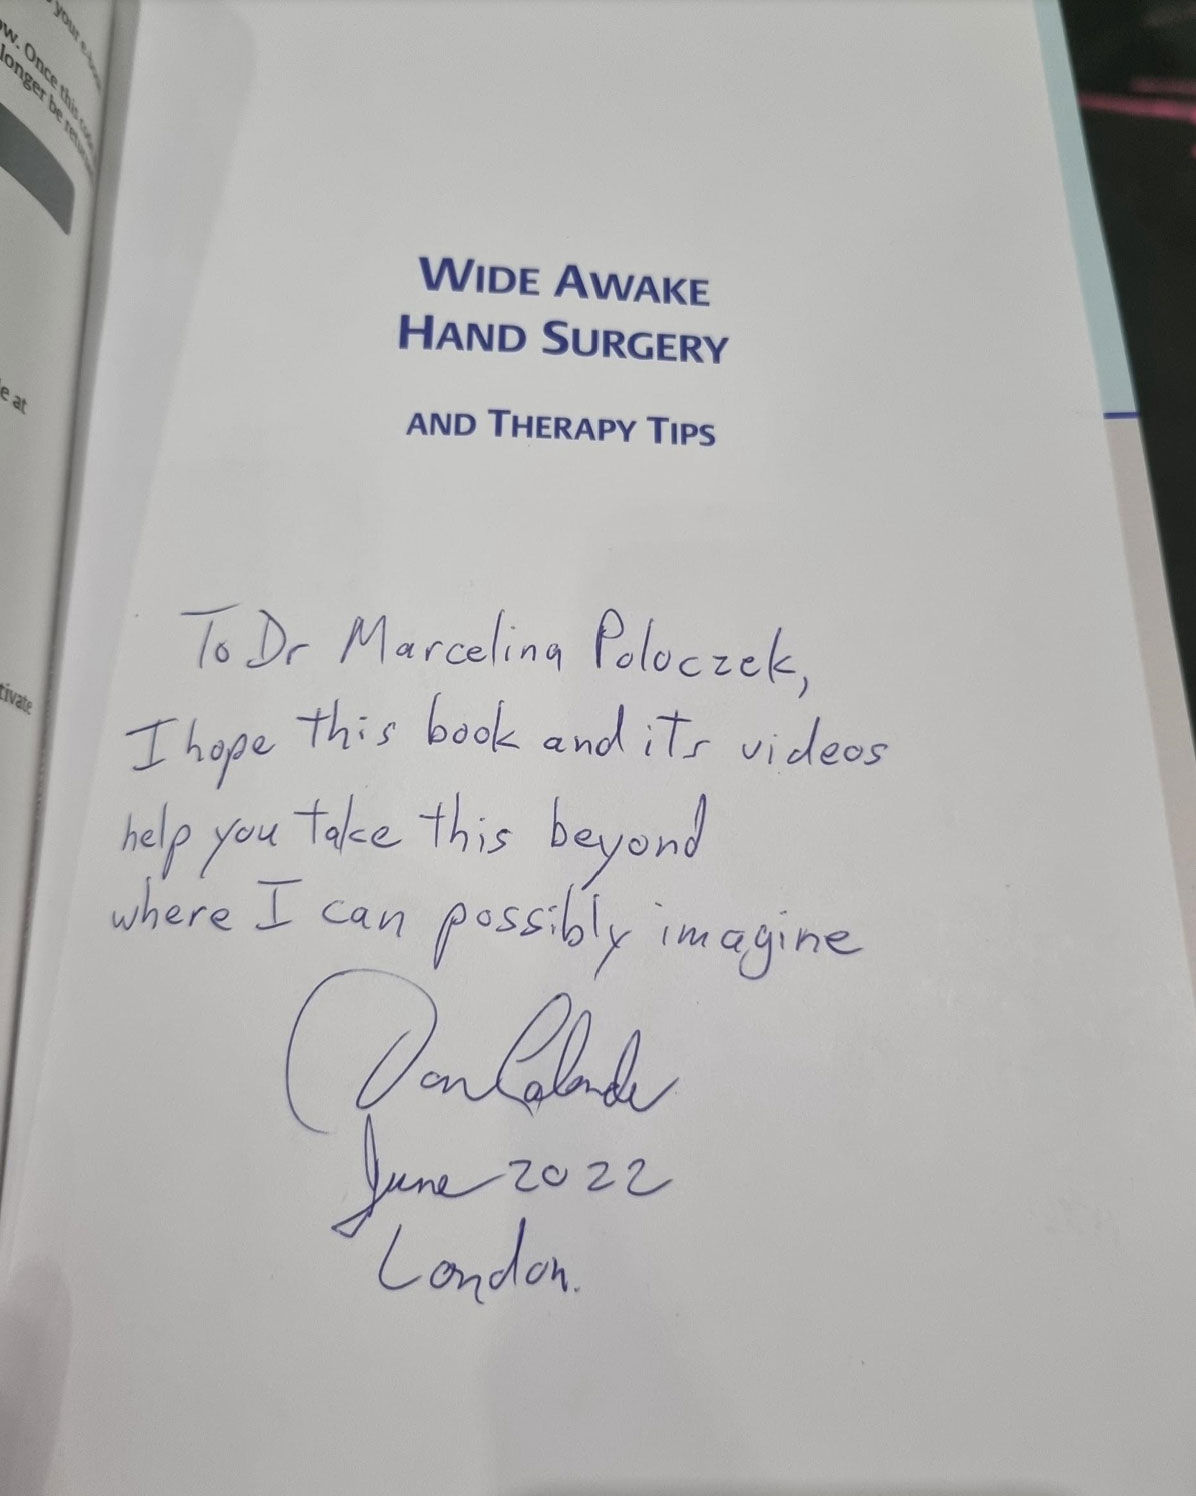 your
ow. Once this
longer be
e at
tivate
WIDE AWAKE
HAND SURGERY
AND THERAPY TIPS
To Dr Marcelina Poloczek,
I hope this book and its videos
help you take this beyond
where I can possibly imagine
Don Lalonde
June 2022
London.